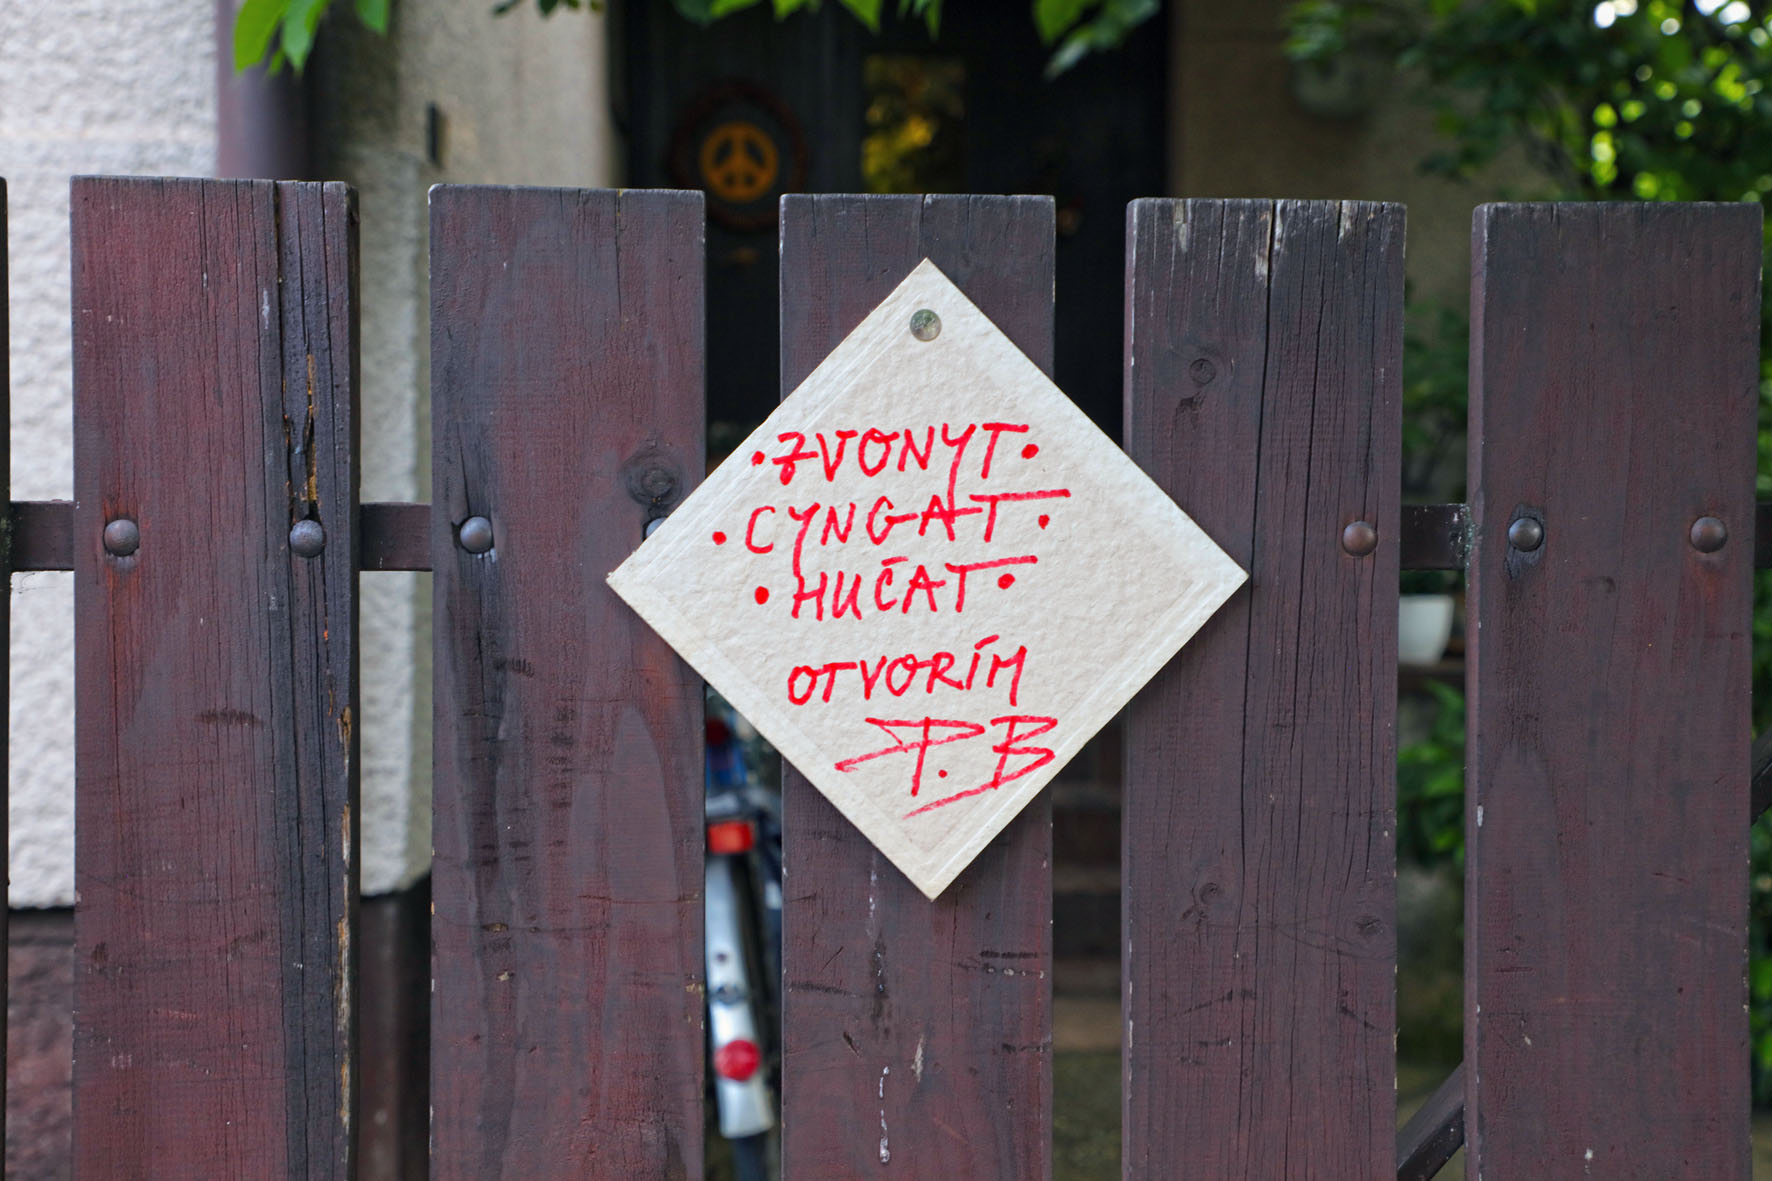 • ZVONYT •
• CYNGAT •
• HUČAT •
OTVORÍM
P. B